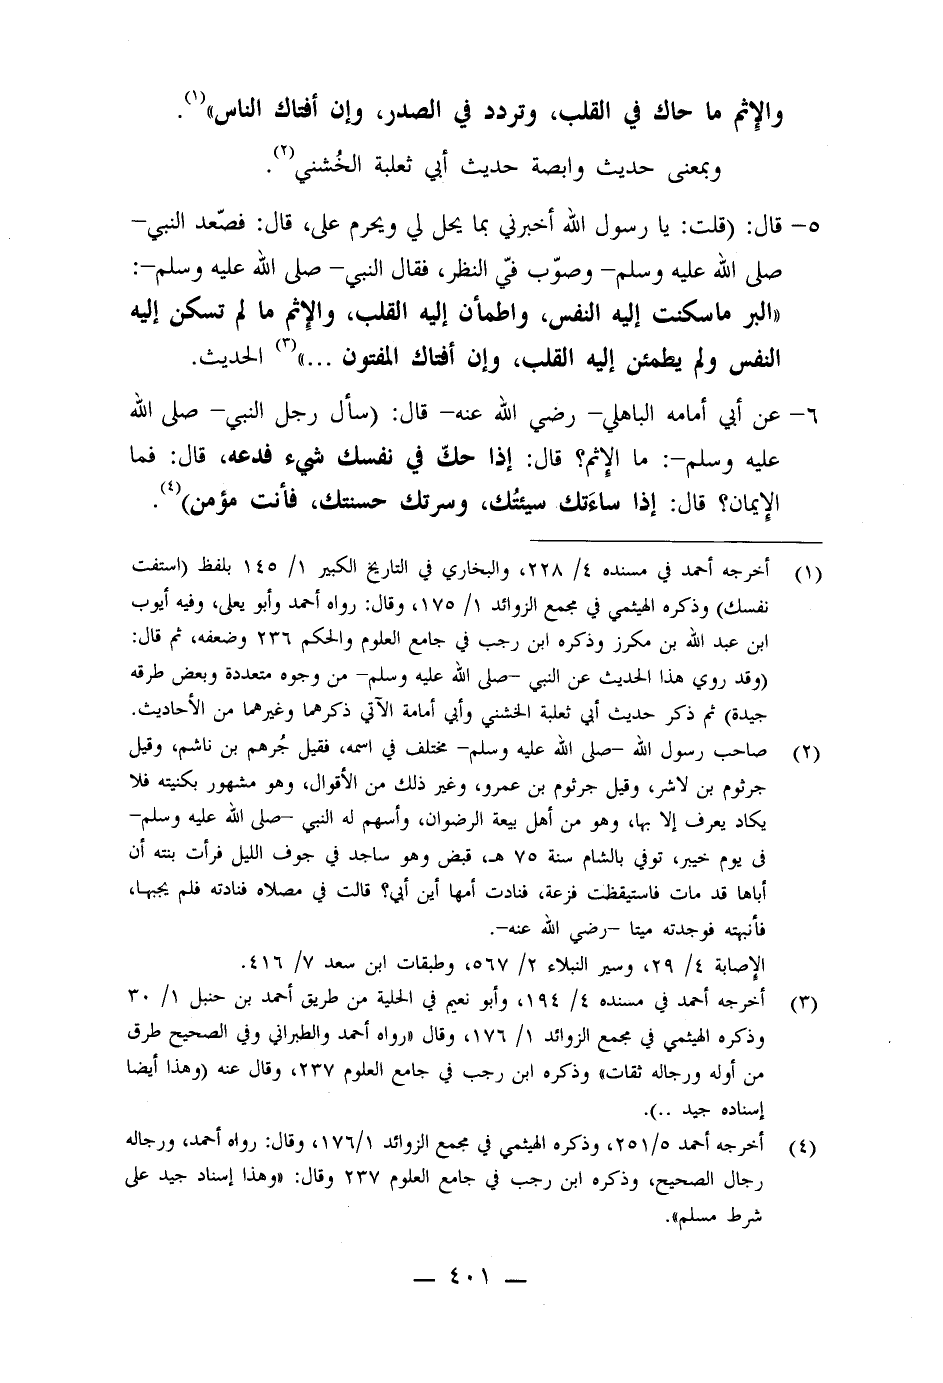 والإثم ما حاك في القلب، وتردد في الصدر، وإن أفتاك الناس»(١).
وبمعنى حديث وابصة حديث أبي ثعلبة الخُشني(٢).
٥- قال: (قلت: يا رسول الله أخبرني بما يحل لي ويحرم على، قال: فصّعد النبي-
صلى الله عليه وسلم- وصوّب فيّ النظر، فقال النبي- صلى الله عليه وسلم-:
«البر ماسكنت إليه النفس، واطمأن إليه القلب، والإثم ما لم تسكن إليه
النفس ولم يطمئن إليه القلب، وإن أفتاك المفتون ...»(٣) الحديث.
٦- عن أبي أمامه الباهلي- رضي الله عنه- قال: (سأل رجل النبي- صلى الله
عليه وسلم-: ما الإثم؟ قال: إذا حكّ في نفسك شيء فدعه، قال: فما
الإيمان؟ قال: إذا ساءَتك سيئتُك، وسرتك حسنتك، فأنت مؤمن)(٤).
(١) أخرجه أحمد في مسنده ٤/ ٢٢٨، والبخاري في التاريخ الكبير ١/ ١٤٥ بلفظ (استفت
نفسك) وذكره الهيثمي في مجمع الزوائد ١/ ١٧٥، وقال: رواه أحمد وأبو يعلى، وفيه أيوب
ابن عبد الله بن مكرز وذكره ابن رجب في جامع العلوم والحكم ٢٣٦ وضعفه، ثم قال:
(وقد روي هذا الحديث عن النبي -صلى الله عليه وسلم- من وجوه متعددة وبعض طرقه
جيدة) ثم ذكر حديث أبي ثعلبة الخشني وأبي أمامة الآتي ذكرهما وغيرهما من الأحاديث.
(٢) صاحب رسول الله -صلى الله عليه وسلم- مختلف في اسمه، فقيل جُرهم بن ناشم، وقيل
جرثوم بن لاشر، وقيل جرثوم بن عمرو، وغير ذلك من الأقوال، وهو مشهور بكنيته فلا
يكاد يعرف إلا بها، وهو من أهل بيعة الرضوان، وأسهم له النبي -صلى الله عليه وسلم-
فى يوم خيبر، توفي بالشام سنة ٧٥ هـ، قبض وهو ساجد في جوف الليل فرأت بنته أن
أباها قد مات فاستيقظت فزعة، فنادت أمها أين أبي؟ قالت في مصلاه فنادته فلم يجبها،
فأنبهته فوجدته ميتا -رضي الله عنه-.
الإصابة ٤/ ٢٩، وسير النبلاء ٢/ ٥٦٧، وطبقات ابن سعد ٧/ ٤١٦.
(٣) أخرجه أحمد في مسنده ٤/ ١٩٤، وأبو نعيم في الحلية من طريق أحمد بن حنبل ١/ ٣٠
وذكره الهيثمي في مجمع الزوائد ١/ ١٧٦، وقال «رواه أحمد والطبراني وفي الصحيح طرق
من أوله ورجاله ثقات» وذكره ابن رجب في جامع العلوم ٢٣٧، وقال عنه (وهذا أيضا
إسناده جيد ..).
(٤) أخرجه أحمد ٢٥١/٥، وذكره الهيثمي في مجمع الزوائد ١٧٦/١، وقال: رواه أحمد، ورجاله
رجال الصحيح، وذكره ابن رجب في جامع العلوم ٢٣٧ وقال: «وهذا إسناد جيد على
شرط مسلم».
— ٤٠١ —